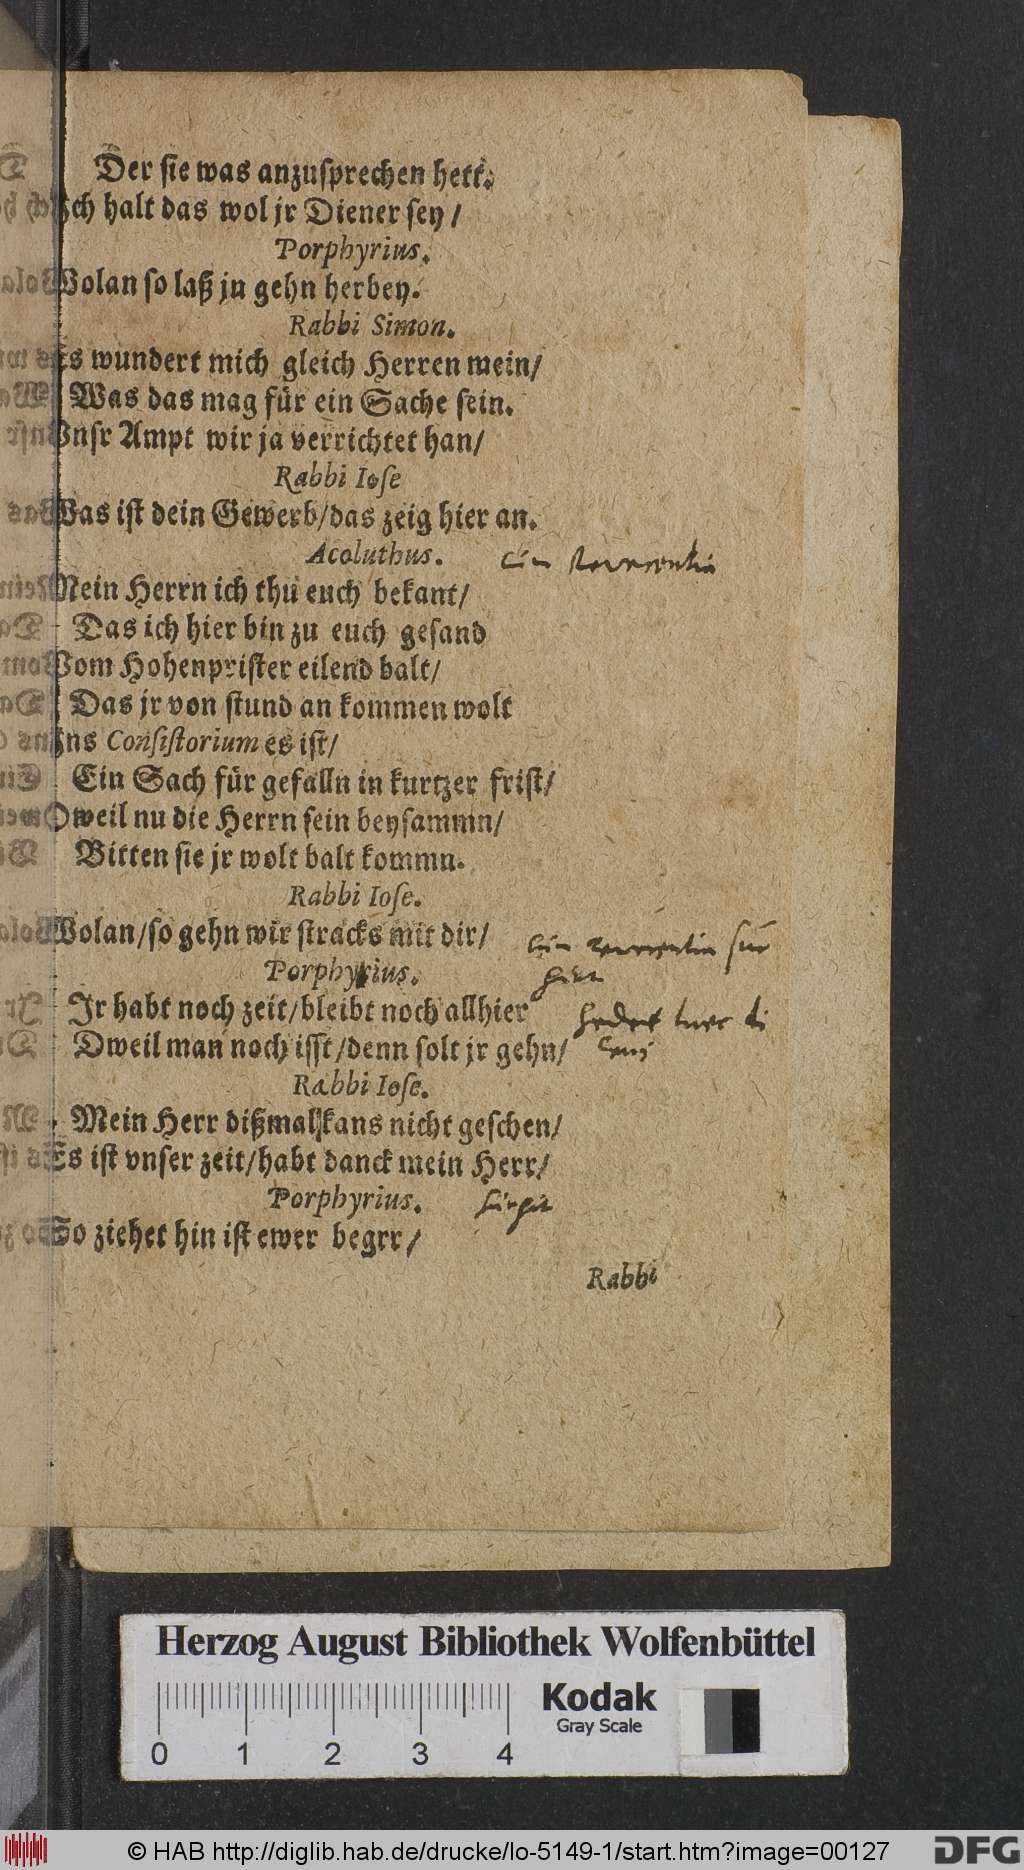 Der sie was anzusprechen hett.
Ich halt das wol jr Diener sey /
Porphyrius.
Wolan so laß jn gehn herbey.
Rabbi Simon.
Es wundert mich gleich Herren mein/
Was das mag für ein Sache sein.
Vnsr Ampt wir ja verrichtet han/
Rabbi Iose
Was ist dein Gewerb/das zeig hier an.
Acoluthus. cum Reverentia
Mein Herrn ich thu euch bekant/
Das ich hier bin zu euch gesand
Vom Hohenprister eilend balt/
Das jr von stund an kommen wolt
Ins Consistorium es ist/
Ein Sach für gefalln in kurtzer frist/
Dweil nu die Herrn sein beysammn/
Bitten sie jr wolt balt kommn.
Rabbi Iose.
Wolan/so gehn wir stracks mit dir/ cum reverentia
Porphyrius.
Jr habt noch zeit/bleibt noch allhier
Dweil man noch isst/denn solt jr gehn/
Rabbi Iose.
Mein Herr dißmal kans nicht geschen/
Es ist vnser zeit/habt danck mein Herr/
Porphyrius.
So ziehet hin ist ewer begrr/
Rabbi
Herzog August Bibliothek Wolfenbüttel
Kodak
Gray Scale
0 1 2 3 4
© HAB http://diglib.hab.de/drucke/lo-5149-1/start.htm?image=00127
DFG